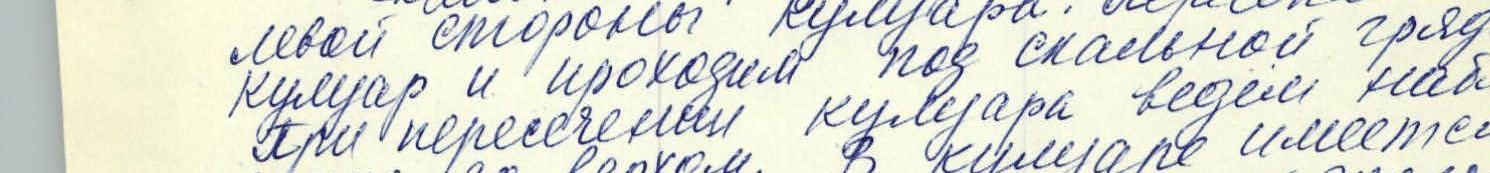 левой стороны кулуара.
кулуар и проходим под скальной гряд
При пересечении кулуара ведем наб
верхом. В кулуаре имеется